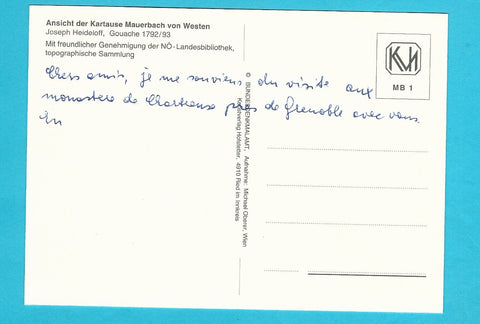 Ansicht der Kartause Mauerbach von Westen
Joseph Heideloff, Gouache 1792/93
Mit freundlicher Genehmigung der NÖ-Landesbibliothek,
topographische Sammlung
KVH
MB 1
Chers amis, je me souviens du visite aux
monastere de Chartreuse près de Grenoble avec vous.
En
© BUNDESDENKMALAMT, Aufnahme: Michael Oberer, Wien
Kunstverlag Hofstetter, 4910 Ried im Innkreis